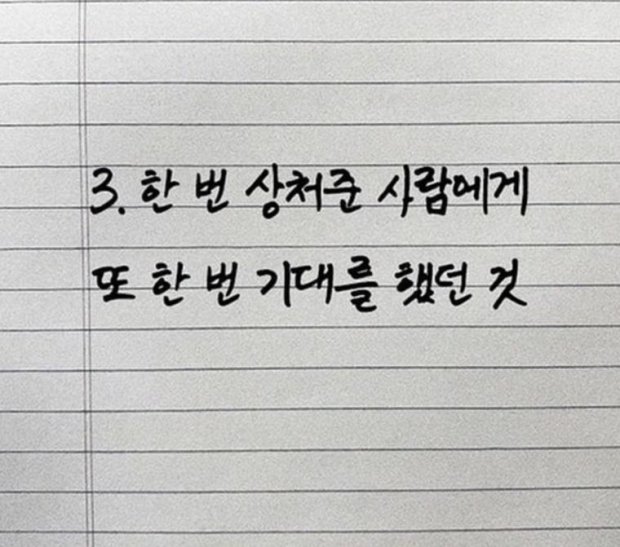 3. 한 번 상처준 사람에게
또 한 번 기대를 했던 것